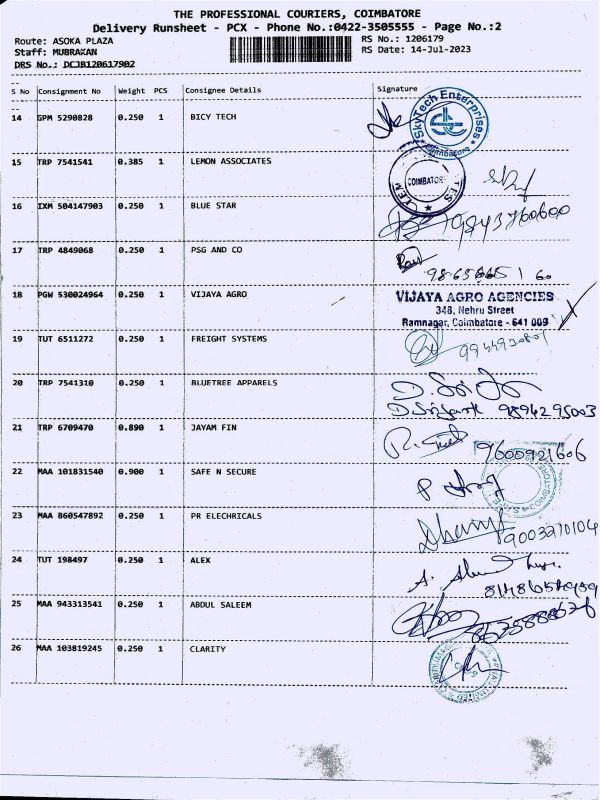 THE PROFESSIONAL COURIERS, COIMBATORE
Delivery Runsheet - PCX - Phone No.:0422-3505555 - Page No.:2
Route: ASOKA PLAZA RS No.: 1206179
Staff: MUBRAKAN RS Date: 14-Jul-2023
DRS No.: DCJB120617902
S No Consignment No Weight PCS Consignee Details Signature
14 GPM 5290828 0.250 1 BICY TECH
SkyTech Enterprises Coimbatore
15 TRP 7541541 0.385 1 LEMON ASSOCIATES
COIMBATOR
16 IXM 504147903 0.250 1 BLUE STAR
9843760600
17 TRP 4849068 0.250 1 PSG AND CO
18 PGW 530024964 0.250 1 VIJAYA AGRO
VIJAYA AGRO AGENCIES
348, Nehru Street
Ramnagar, Coimbatore - 641 009
19 TUT 6511272 0.250 1 FREIGHT SYSTEMS
20 TRP 7541310 0.250 1 BLUETREE APPARELS
9894295003
21 TRP 6709470 0.890 1 JAYAM FIN
9600921606
22 MAA 101831540 0.900 1 SAFE N SECURE
23 MAA 860547892 0.250 1 PR ELECHRICALS
9003270104
24 TUT 198497 0.250 1 ALEX
25 MAA 943313541 0.250 1 ABDUL SALEEM
26 MAA 103819245 0.250 1 CLARITY